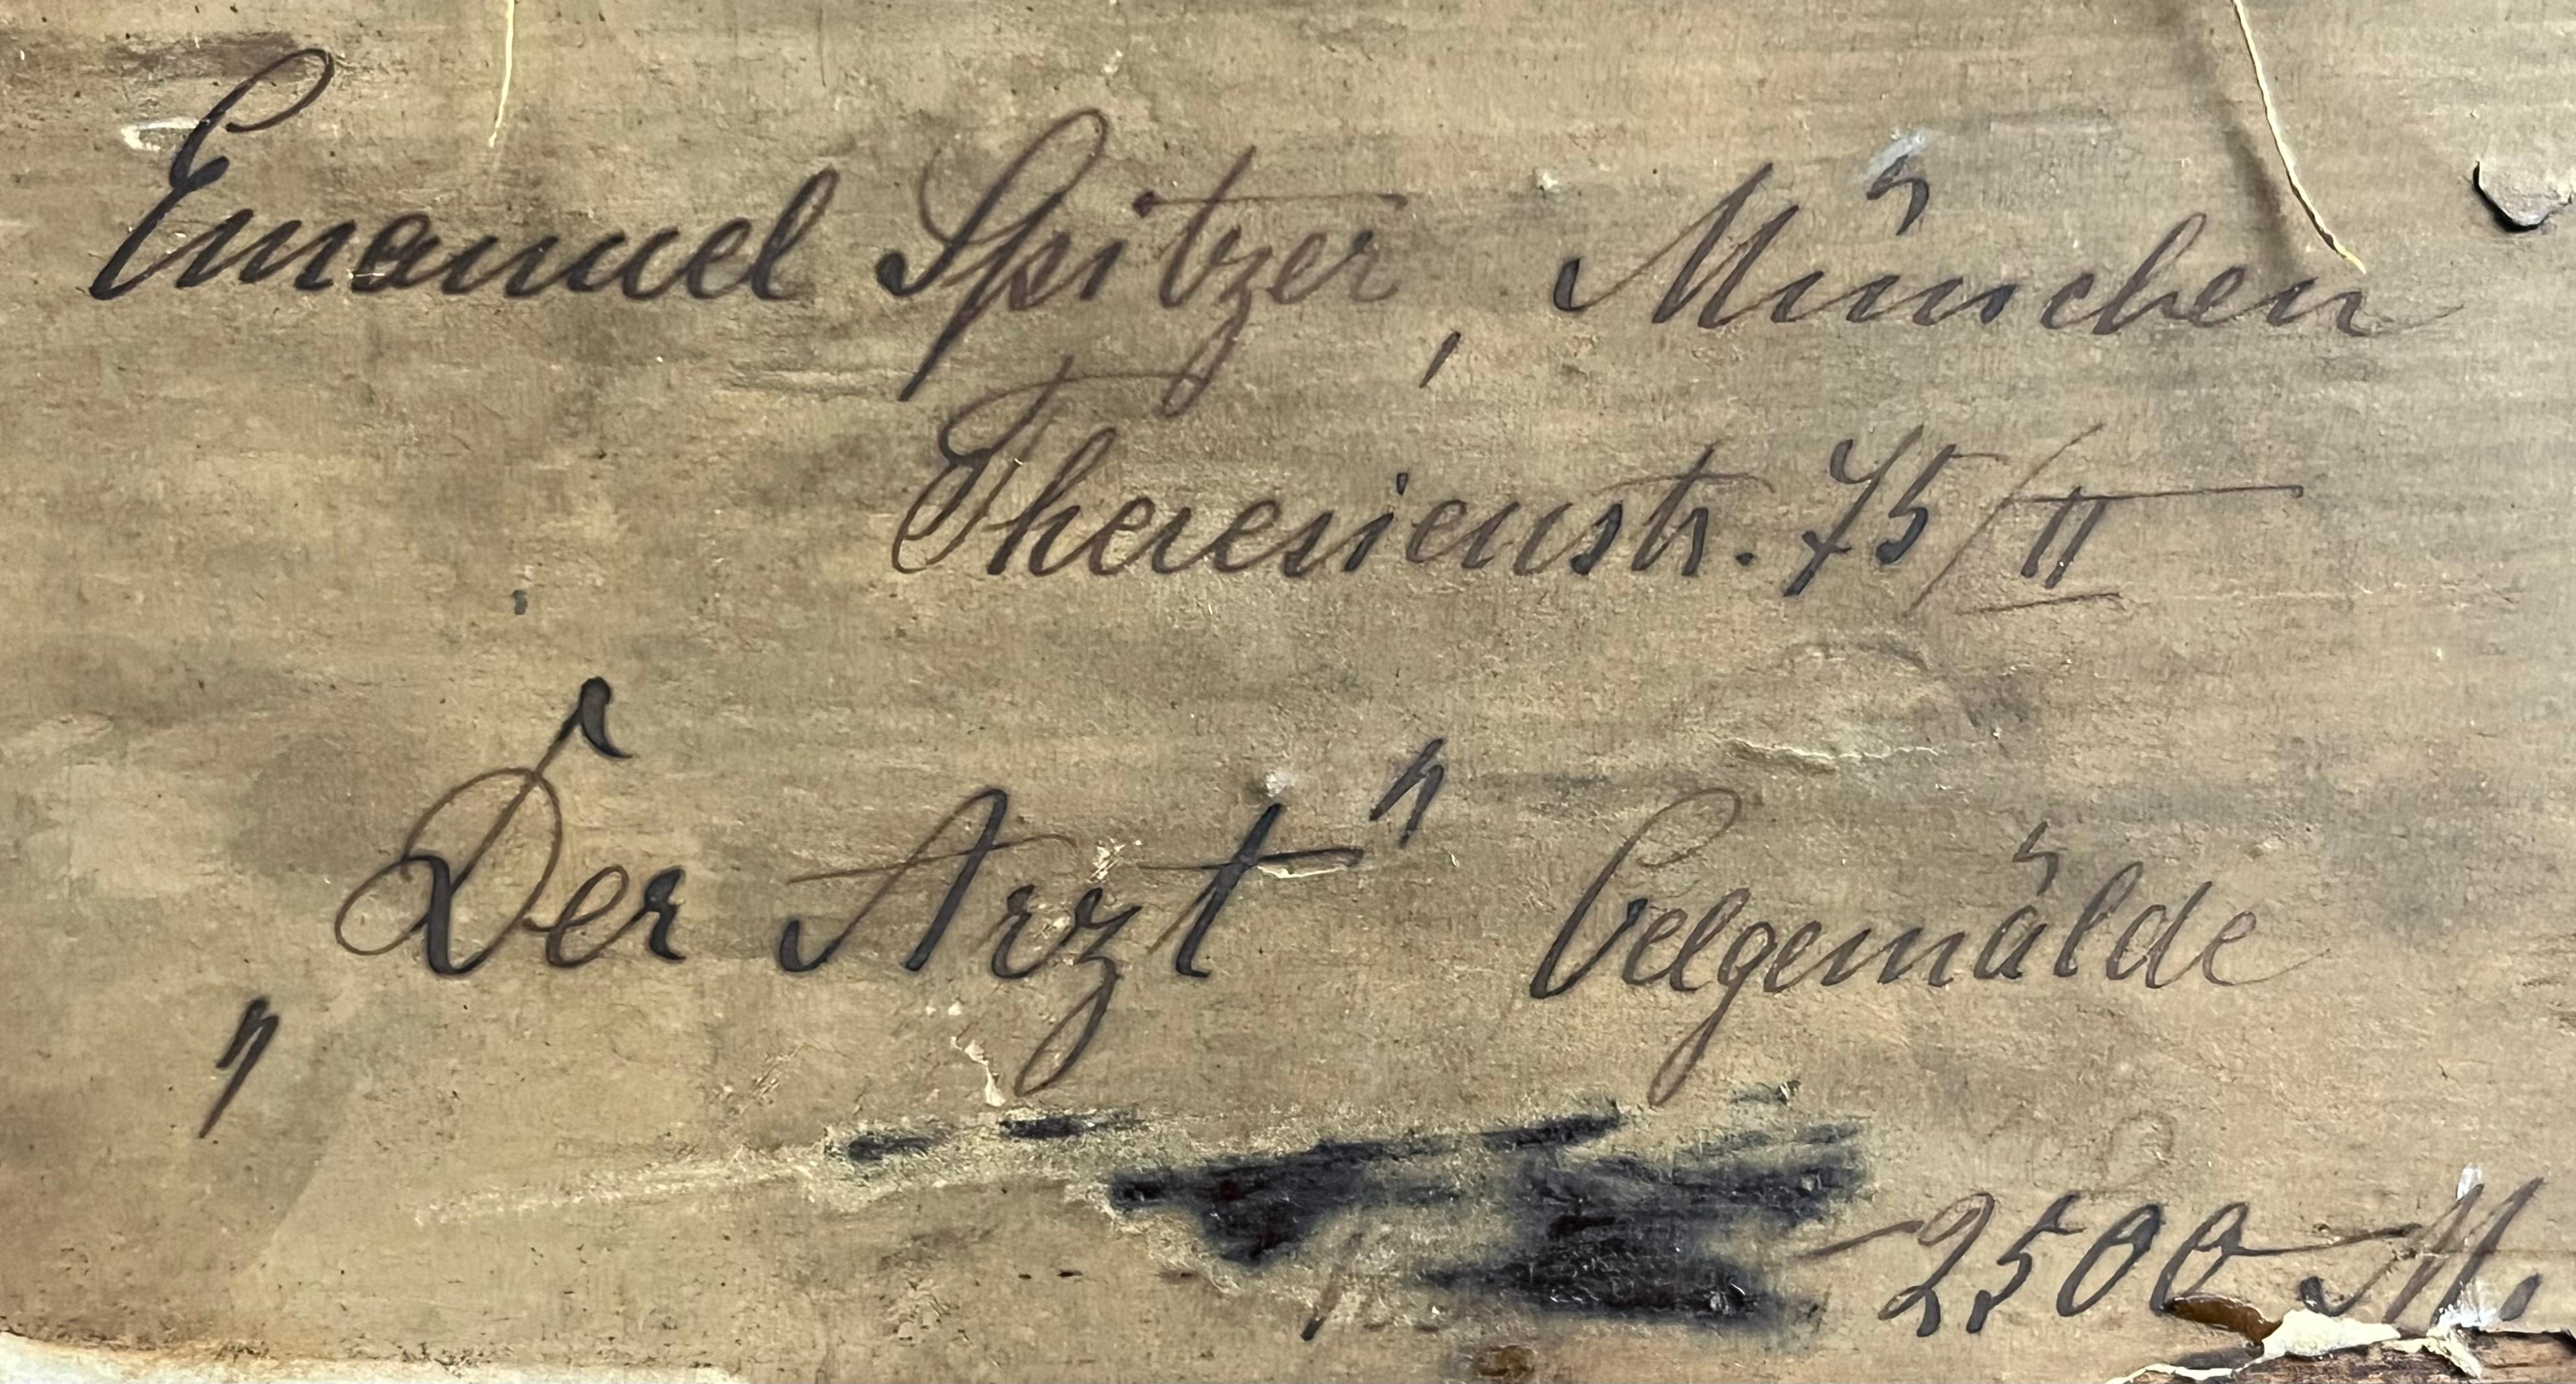 Emanuel Spitzer, München
Theresienstr. 75/II
„Der Arzt" Oelgemälde
2500 M.